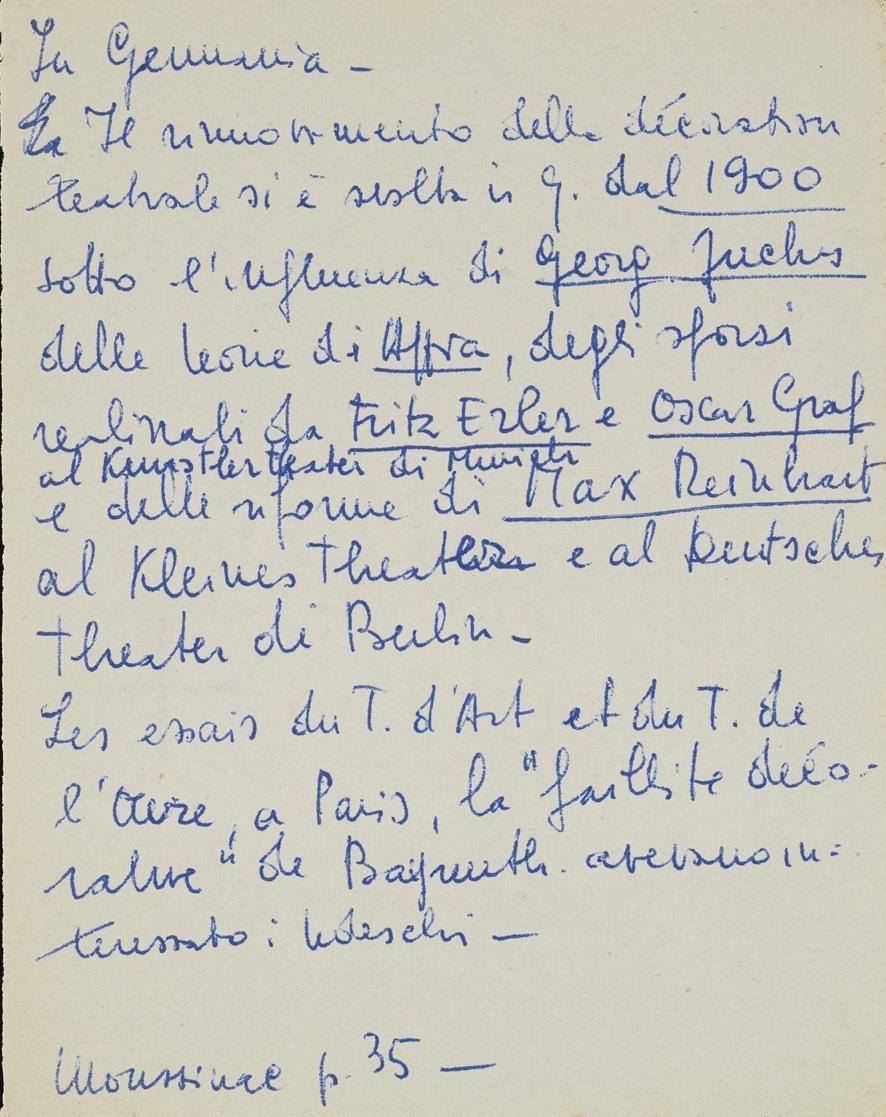 In Germania -
Il rinnovamento della décoration
teatrale si è svolta in G. dal 1900
sotto l'influenza di Georg Fuchs
delle teorie di Appia, degli sforsi
realizzati da Fritz Erler e Oscar Graf
al Kunstlertheater di Munich
e delle riforme di Max Reinhart
al Kleines Theater e al Deutsches
Theater di Berlin -
Les essais du T. d'Art et du T. de
l'Œuvre, a Paris, la "faillite déco-
rative" de Bayreuth. avevano in=
teressato i tedeschi -
Moussinac p. 35 -